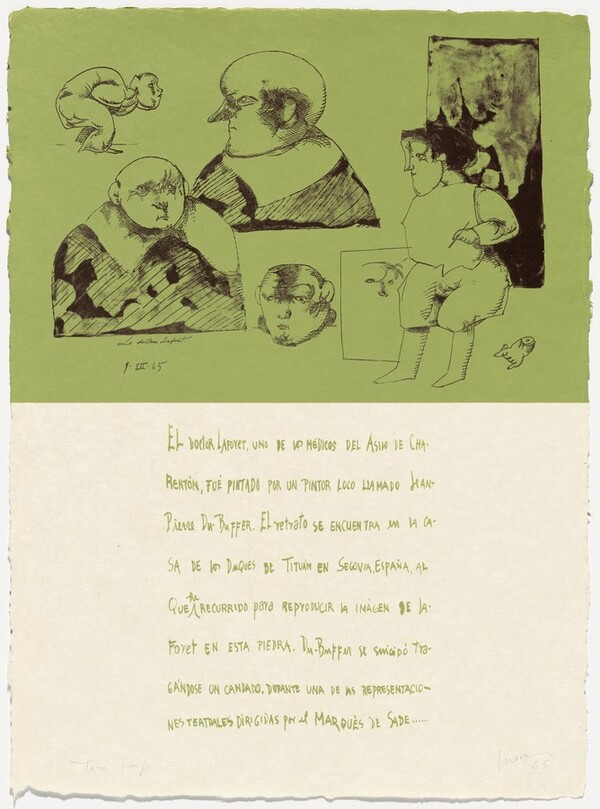 Le docteur Lafoyet
9-VII-65
EL DOCTOR LAFOYET, UNO DE LOS MÉDICOS DEL ASILO DE CHA-
RENTÓN, FUÉ PINTADO POR UN PINTOR LOCO LLAMADO JEAN-
PIERRE DU-BUFFER. EL RETRATO SE ENCUENTRA EN LA CA-
SA DE LOS DUQUES DE TITUÁN EN SEGOVIA, ESPAÑA, AL
QUE HE RECURRIDO PARA REPRODUCIR LA IMÁGEN DE LA-
FOYET EN ESTA PIEDRA. DU-BUFFER SE SUICIDÓ TRA-
GÁNDOSE UN CANDADO, DURANTE UNA DE LAS REPRESENTACIO-
NES TEATRALES DIRIGIDAS POR EL MARQUÉS DE SADE......
65